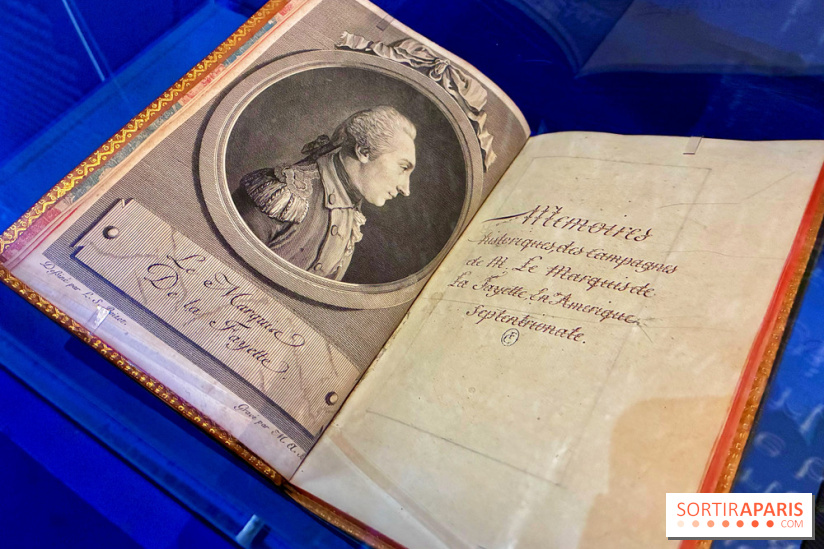 Le Marquis
De la Fayette.
Dessiné par L. S.
Gravé par M. A.
Memoires
historiques, des Campagnes
de M. Le Marquis de
La Fayette, En Amerique
Septentrionale.
SORTIRAPARIS
.COM